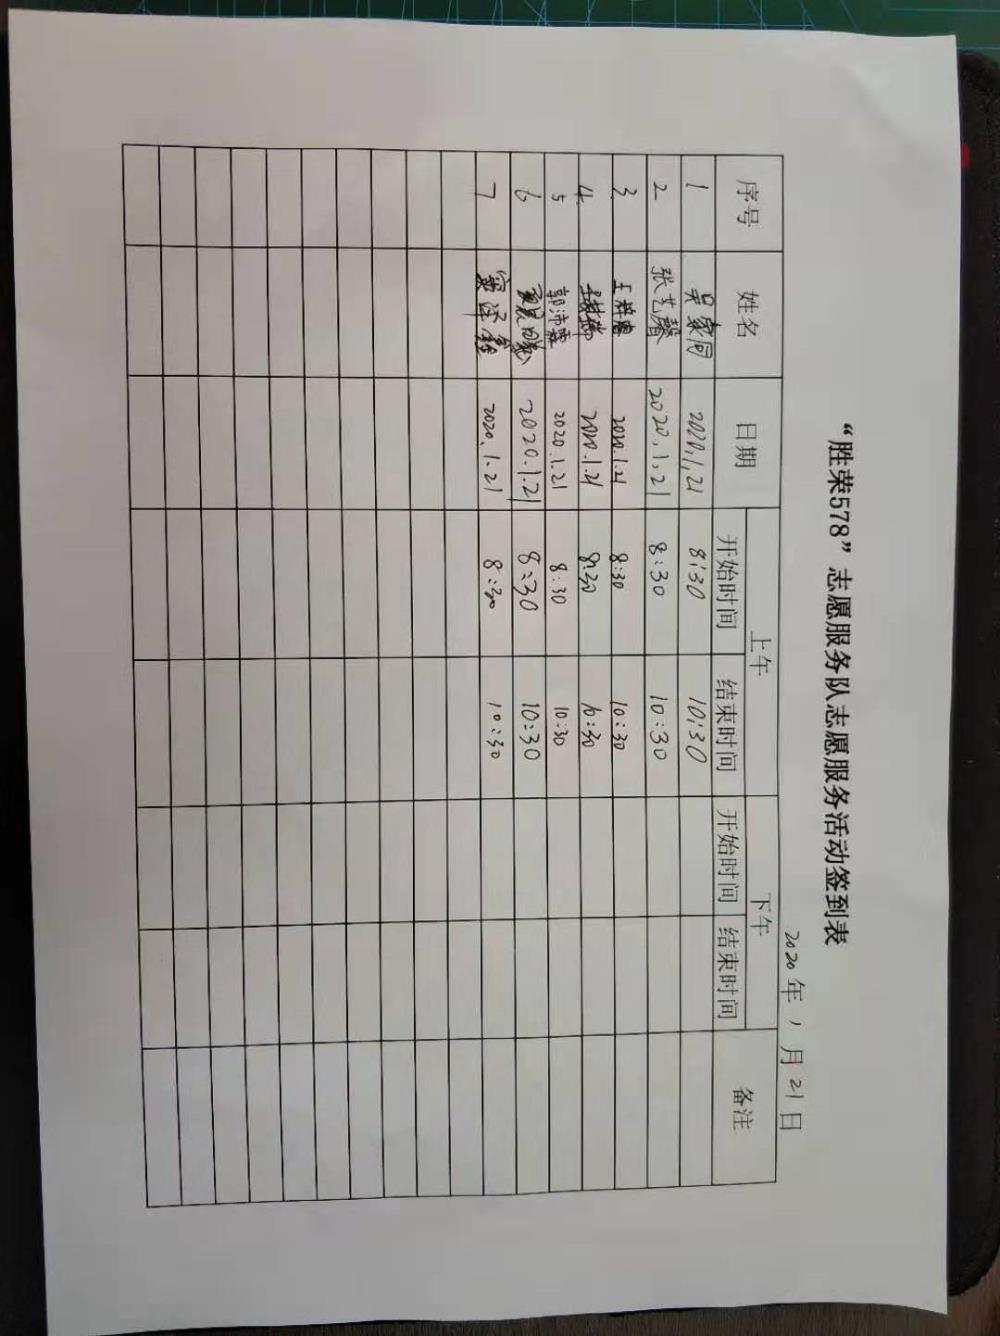 “胜荣578”志愿服务队志愿服务活动签到表
2020年1月21日
序号 姓名 日期 上午 下午 备注
开始时间 结束时间 开始时间 结束时间
1 吴家同 2020.1.21 8:30 10:30
2 张艺馨 2020.1.21 8:30 10:30
3 2020.1.21 8:30 10:30
4 2020.1.21 8:30 10:30
5 郭沛霖 2020.1.21 8:30 10:30
6 2020.1.21 8:30 10:30
7 2020.1.21 8:30 10:30